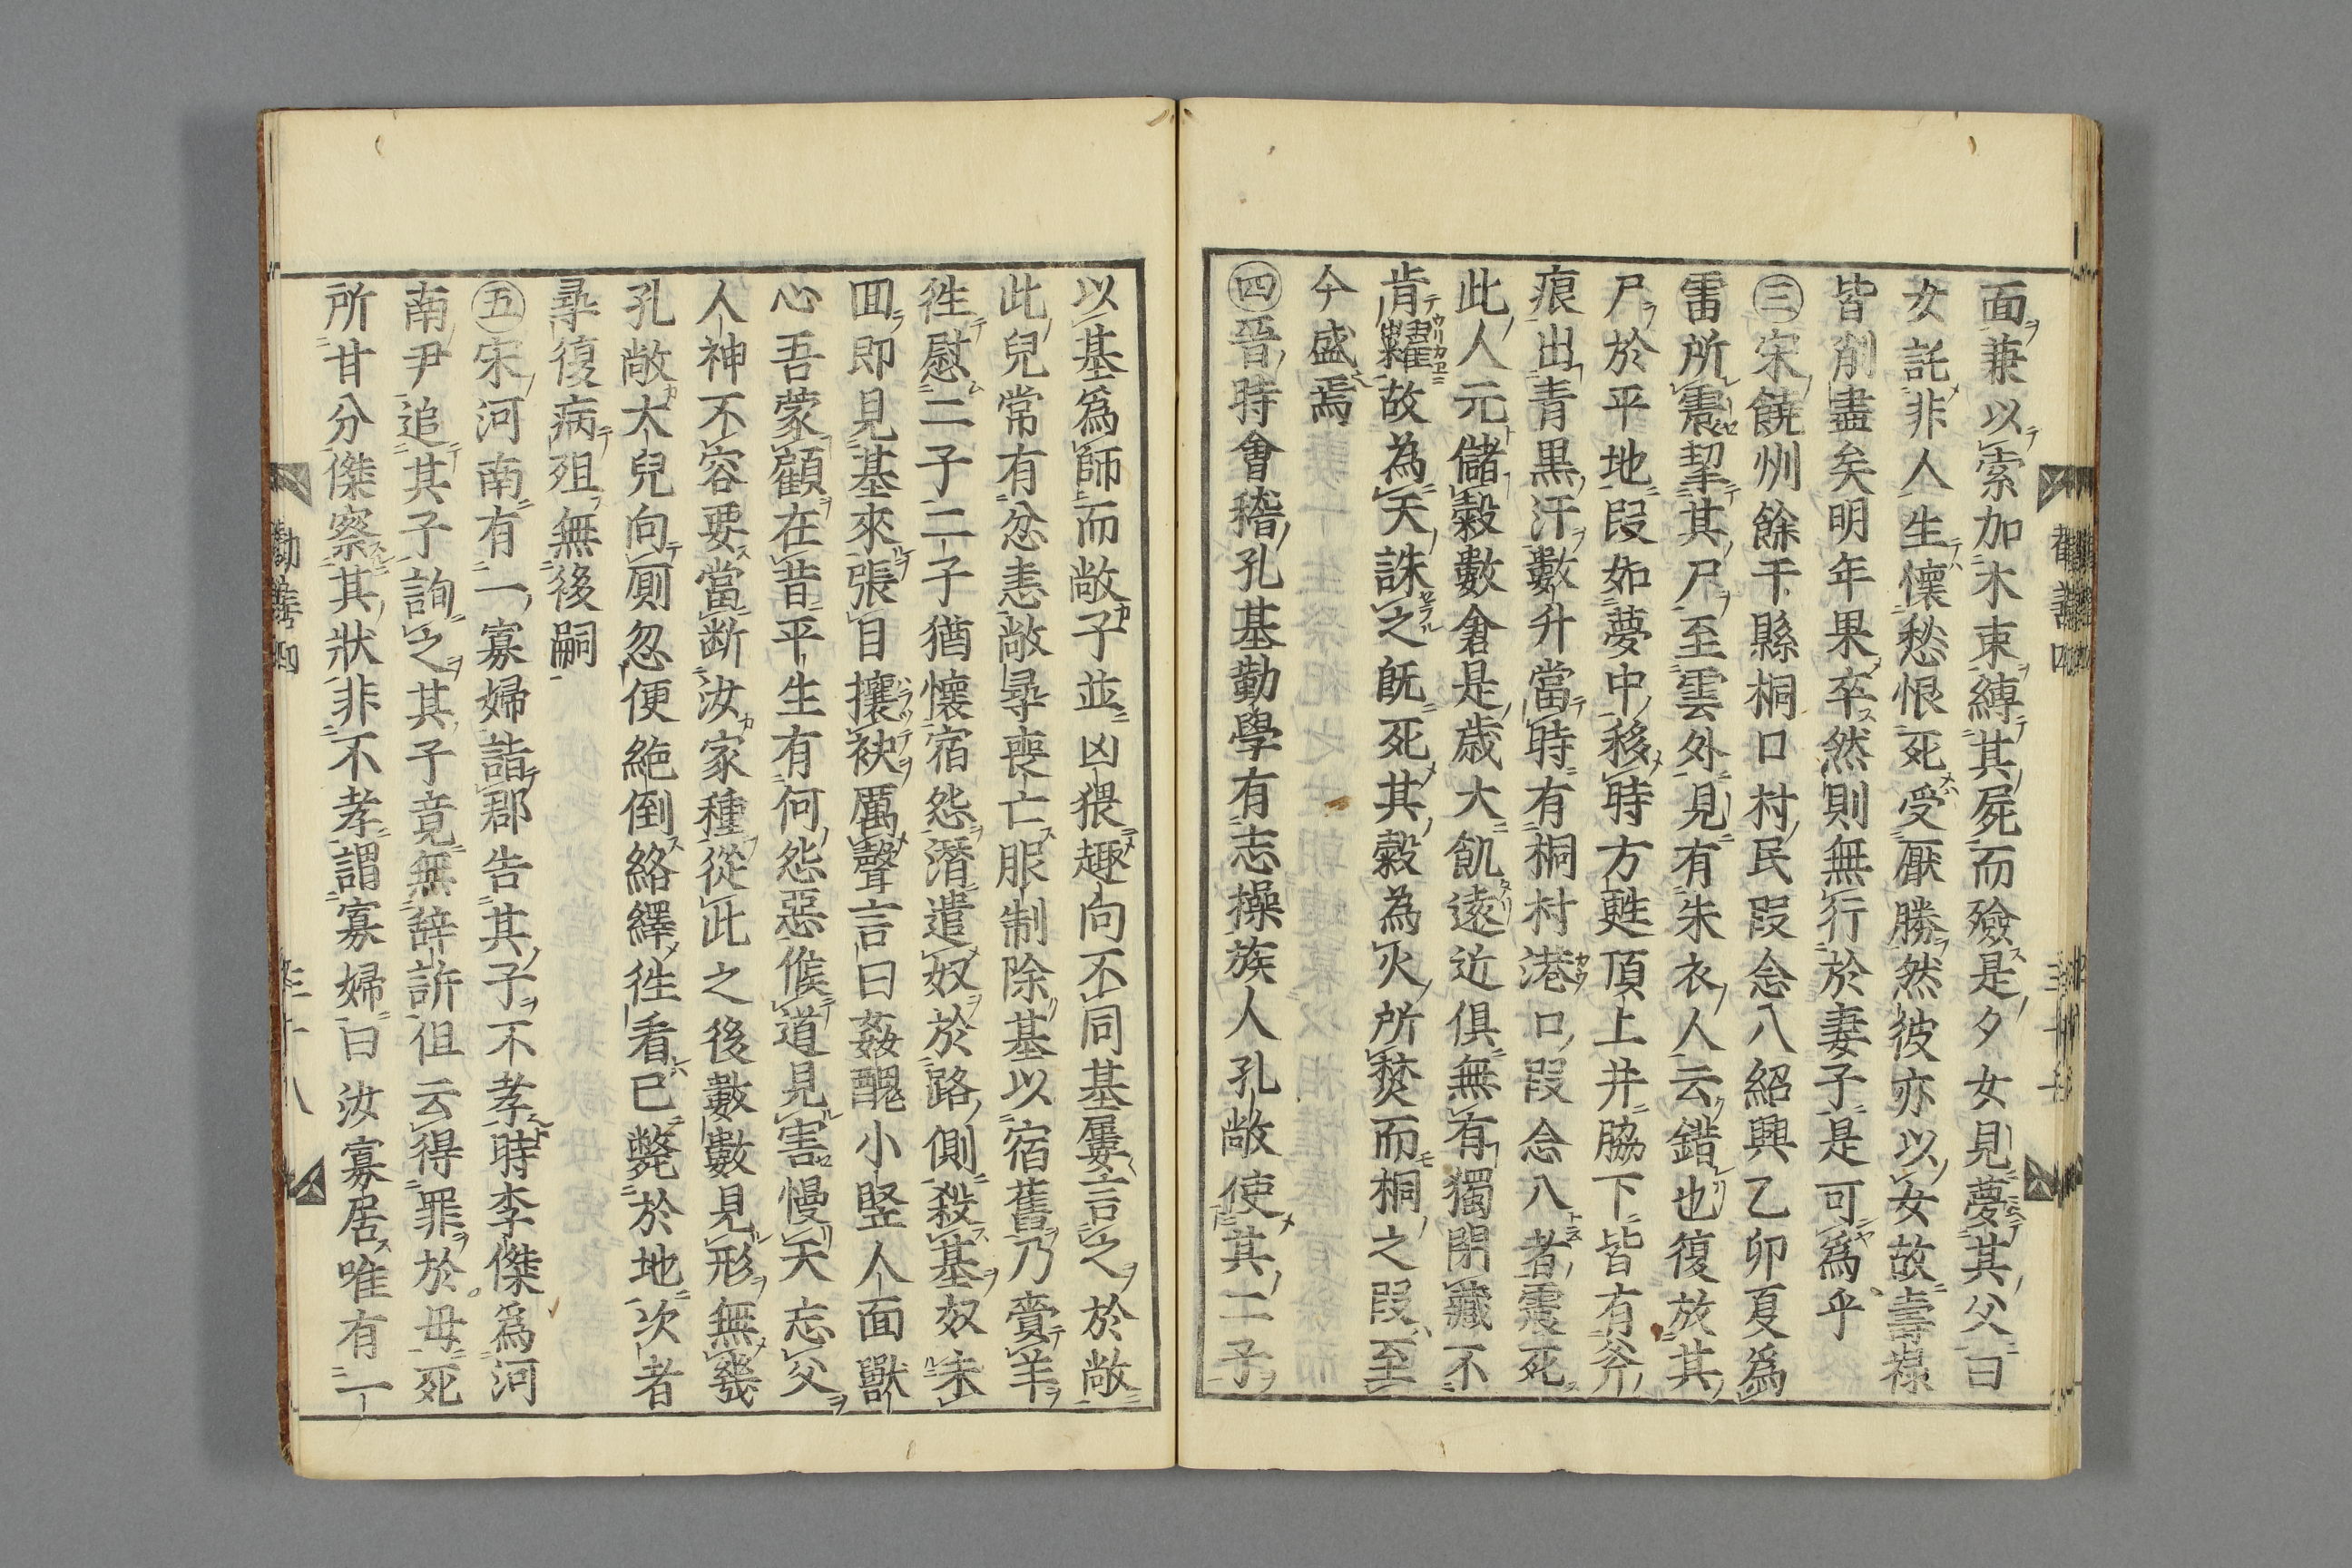 面兼以索加木束縛其屍而殮是夕女見夢其父曰
女託非人生懷愁恨死受厭勝然彼亦以女故壽祿
皆削盡矣明年果卒然則無行於妻子是可爲乎
㊂宋饒州餘干縣桐口村民叚念八紹興乙卯夏爲
雷所震挈其尸至雲外見有朱衣人云錯也復放其
尸於平地叚如夢中移時方甦頂上并脇下皆有斧
痕出青黒汗數升當時有桐村港口叚念八者震死
此人元儲穀數倉是歳大飢遠近俱無有獨閉藏不
肯糶故為天誅之既死其穀為火所焚而桐之叚至
今盛焉
㊃晉時會稽孔基勤學有志操族人孔敞使其二子
以基爲師而敞子並凶猥趣向不同基屢言之於敞
此兒常有忿恚敞尋喪亡服制除基以宿舊乃賫羊
徃慰二子二子猶懷宿怨潛遣奴於路側殺基奴未
囬即見基來張目攘袂厲聲言曰姦醜小竪人面獸
心吾蒙顧在昔平生有何怨惡候道見害慢天忘父
人神不容要當断汝家種從此之後數數見形無幾
孔敞大兒向厠忽便絶倒絡繹徃看已斃於地次者
尋復病殂無後嗣
㊄宋河南有一寡婦詣郡告其子不孝時李傑爲河
南尹追其子詢之其子竟無辞訴但云得罪於毋死
所甘分傑察其狀非不孝謂寡婦曰汝寡居唯有一
勸善四
三十八